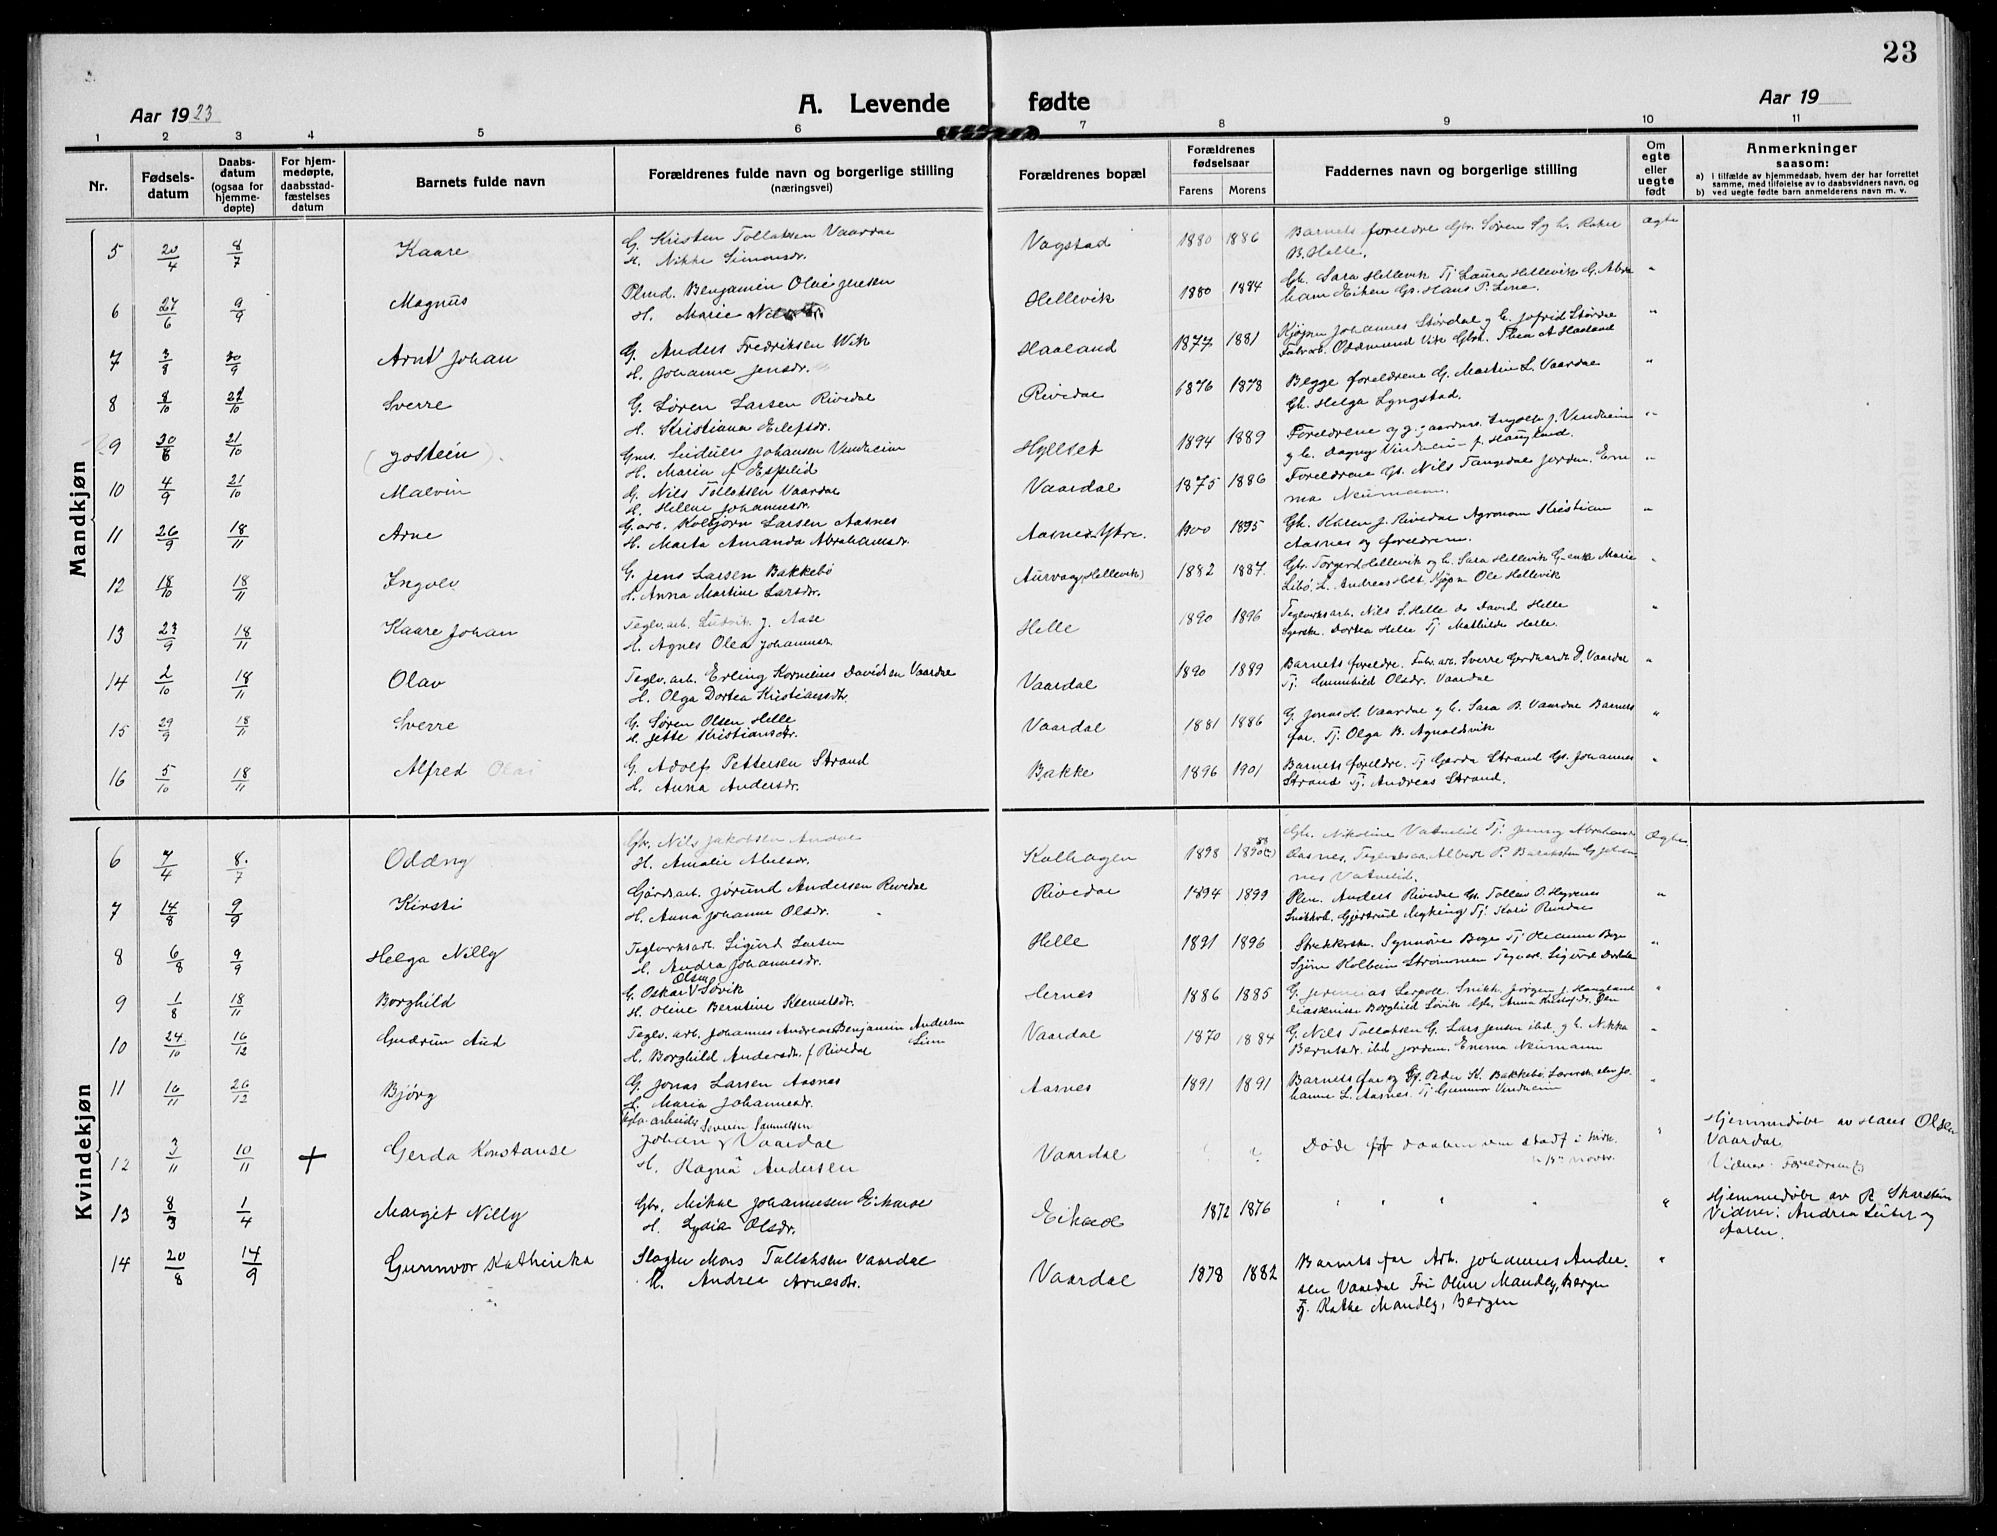 23
Aar 1923
A. Levende fødte
Aar 19
1 2 3 4 5 6 7 8 9 10 11
Nr.
Fødsels-
datum
Daabs-
datum
(ogsaa for
hjemme-
døpte)
For hjem-
medøpte,
daabsstad-
fæstelses
datum
Barnets fulde navn
Forældrenes fulde navn og borgerlige stilling
(næringsvei)
Forældrenes bopæl
Forældrenes
fødselsaar
Farens Morens
Faddernes navn og borgerlige stilling
Om
egte
eller
uegte
født
Anmerkninger
saasom:
a) i tilfælde av hjemmedaab, hvem der har forrettet
samme, med tilføielse av to daabsvidners navn, og
b) ved uegte fødte barn anmelderens navn m. v.
Mandkjøn
5 20/4 8/7 Kaare G. Kristen Tollaksen Vaardal Vagstad 1880 1886 Barnets foreldre Gbr. Søren Ægte
H. Nikka Simonsdr. B. Helle.
6 27/6 9/9 Magnus Benjamin Olai Jensen Hellevik 1880 1884 Gk. Sara Hellevik Tj Laura Hellevik G. Abra "
H. Marie ham Eiken Gs. Hans P. Line.
7 3/8 30/9 Arnt Johan G. Anders Fredriksen Wik Haaland 1877 1881 Kjøpm Johannes Størdal og h. Jofrid Størdal "
H. Johanne Jensdr. Oddmund Vik Gbr. Thea A Haaland
8 8/10 21/10 Sverre G. Søren Larsen Rivedal Rivedal 1876 1878 Begge foreldrene G. Martin L. Vaardal "
H. Kristiana Eilefsdr. Gk. Helga Lyngstad.
9 30/6 21/10 (Jostein) Johansen Vindheim Hyllset 1894 1889 Foreldrene og Ingolf J. Vindheim "
H. Maria f. Espelid og h. Dagny Vindheim f. Haugland.
10 4/9 21/10 Malvin G. Nils Tollaksen Vaardal Vaardal 1875 1886 Foreldrene Gs. Nils Tangedal Jordm. Em "
H. Helene Johannesdr. ma Neumann.
11 26/9 18/11 Arne G. arb. Kolbjørn Larsen Aasnes Aasnes Ytre. 1900 1895 Gk. Karen J. Rivedal Agronom Kristian "
H. Marta Amanda Abrahamsdr. Aasnes og foreldrene.
12 18/10 18/11 Ingolv G. Jens Larsen Bakkebø Aurvaag (Hellevik) 1882 1887. Gbr. Torgerd Hellevik og h. Sara Hellevik G-enke Marie "
H. Anna Martine Larsdr. Libø. L. Andreas Holt, Kjøpm Ole Hellevik
13 23/9 18/11 Kaare Johan Teglv.arb. Ludvik J. Aase Helle 1890 1896 Teglverksarb. Nils S. Helle do David Helle "
H. Agnes Olea Johannesdr. Syerske. Dortea Helle Tj Mathilde Helle.
14 2/10 18/11 Olav Teglv. arb. Erling Kornelius Davidsen Vaardal Vaardal 1890 1889 Barnets foreldre. Fabr. arb. Sverre Gerdhardt D. Vaardal "
H. Olga Dortea Kristiansdtr. Tj. Gunnhild Olsdr. Vaardal
15 29/9 18/11 Sverre G. Søren Olsen Helle Vaardal 1881 1886 G. Jonas H. Vaardal og h. Sara B. Vaardal Barnets "
H. Jette Kristiansdr. far. Tj. Olga B. Agnaldsvik
16 5/10 18/11 Alfred Olai G. Adolf Pettersen Strand Bakke 1896 1901 Barnets foreldre. Tj Gerda Strand Gs. Johannes "
H. Anna Andersdr. Strand Tj. Andreas Strand.
Kvindekjøn
6 7/4 8/7 Oddny Gbr. Nils Jakobsen Andal Kolhagen 1898 Gk. Nikoline Vatnelid Tj. Jenny Abrahamsen Ægte
H. Amalie Abelsdr. Aasnes, Albert P. Berntsen G Johan
nes Vatnelid.
7 14/8 9/9 Kirsti Gårdsarb. Jørund Andersen Rivedal Rivedal 1894 1899 Anders Rivedal Gs. Tolleiv O. Høyvenes "
H. Anna Johanne Olsdr. Gjertrud Myking Tj. Kari Rivedal
8 6/8 9/9 Helga Nilly Teglverksarb. Sigurd Larsen Helle 1891 1896 Synnøve Boge Tj Oleanne Boge "
H. Andra Johannesdr. Sjøm Kolbein Strømmen
9 1/8 18/11 Borghild G. Oskar Olsen Løvik Hernes 1886 1885 G. Jeremias Leepoll. Snikk. Jørgen J. Haugland "
H. Oline Berntine Klemetsdr. Borghild Løvik
10 24/10 16/12 Gudrun Aud Teglv. arb. Johannes Andreas Benjamin Andersen Vaardal 1870 1884 G. Nils Tollaksen G. Lars Jensen ibid. og h. Nikka "
H. Borghild Andersdr. f. Rivedal Berntsdr. ibd Jordm. Emma Neumann
11 16/11 26/12 Bjørg G. Jonas Larsen Aasnes Aasnes 1891 1891 Barnets far og Gs. Peder K. Bakkebø. Jo "
H. Maria Johannesdr. hanne L. Aasnes. Tj Gunnvor Vindheim
12 3/11 10/11 + Gerda Konstanse arbeider Søren Samuelsen
Johan Vaardal Vaardal ? ? Døde før daaben stadf. i kirk. "
H. Ragna Andersen novbr.
Hjemmedøbt av Hans Olsen
Vaardal
Vidner: Foreldrene
13 8/3 1/4 Margit Nilly Gbr. Mikal Johannesen Eikeod Eikeod 1872 1876 " " " "
H. Lydia Olsdr.
Hjemmedøbt av R Skarstein
Vidner: Andrea Leiter og
faren.
14 20/8 14/9 Gunnvor Katherika Slagter Mons Tollaksen Vaardal Vaardal 1878 1882 Barnets far Arb. Johannes Ander- "
H. Andrea Arnesdr. sen Vaardal Fru Oline Mandly, Bergen
Tj. Kathe Mandly, Bergen